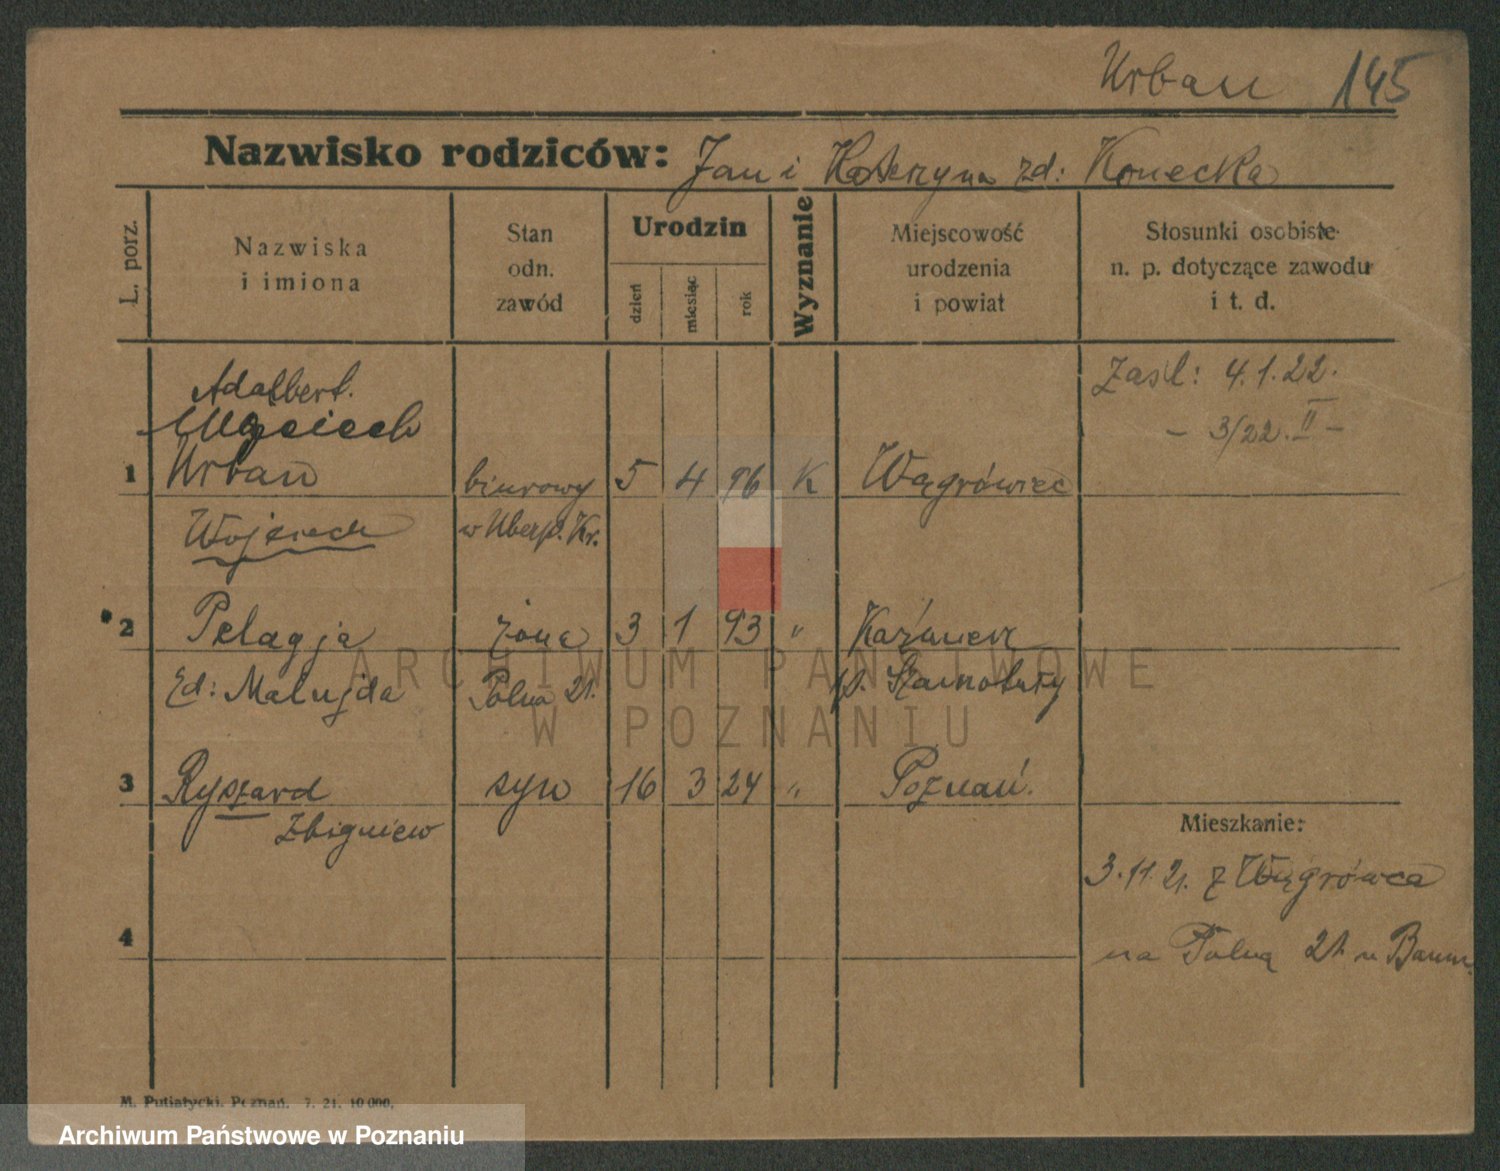 Urban 145
Nazwisko rodziców: Jan i Katarzyna zd: Konecka
L. porz.
Nazwiska
i imiona
Stan
odn.
zawód
Urodzin
dzień
miesiąc
rok
Wyznanie
Miejscowość
urodzenia
i powiat
Stosunki osobiste
n. p. dotyczące zawodu
i t. d.
Adalbert.
Wojciech
1 Urban biurowy 5 4 96 K Wągrówiec
Zasl: 4.1.22.
- 3/22. II -
Wojciech w Kr.
2 Pelagja żona 3 1 93 " Kaźmierz
Zd: Malujda Polna 21. p. Szamotuły
3 Ryszard syn 16 3 24 " Poznań.
Zbigniew
Mieszkanie:
3.11.21. z Wągrówca
4
na Polną 21 u
ARCHIWUM PAŃSTWOWE
W POZNANIU
M. Putiatycki. Poznań. 7. 21. 10 000.
Archiwum Państwowe w Poznaniu